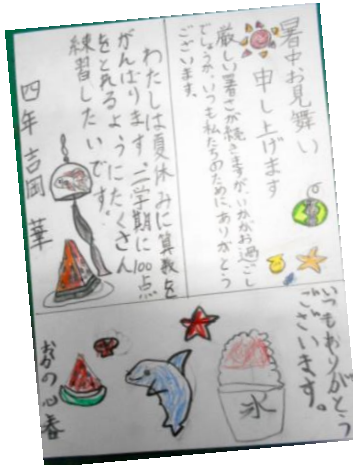 暑中お見舞い
申し上げます
厳しい暑さが続きますが、いかがお過ごし
でしょうか。いつも私たちのために、ありがとう
ございます。
わたしは夏休みに算数を
がんばります。二学期に100点
をとれるようにたくさん
練習したいです。
四年 吉岡 華
いつもありがとう
ございます。
氷
おかの心春